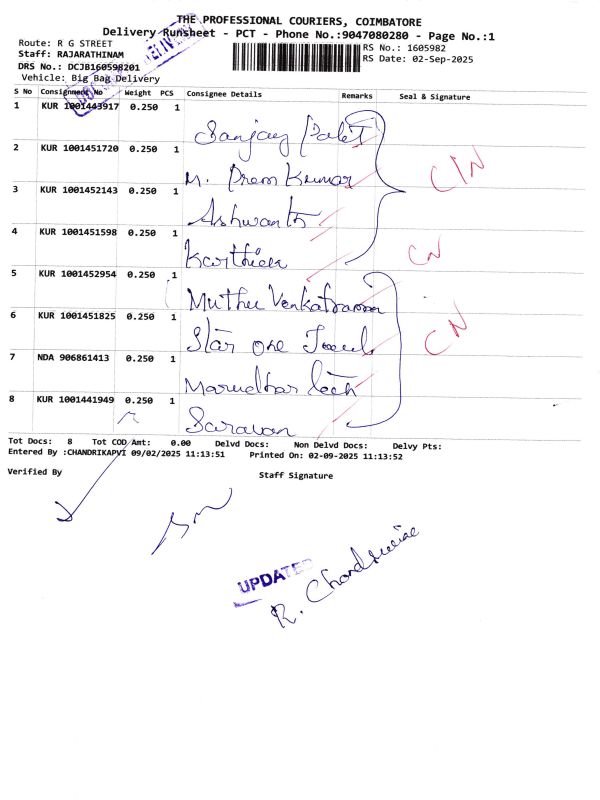 THE PROFESSIONAL COURIERS, COIMBATORE
Delivery Runsheet - PCT - Phone No.:9047080280 - Page No.:1
Route: R G STREET
RS No.: 1605982
Staff: RAJARATHINAM
RS Date: 02-Sep-2025
DRS No.: DCJB160598201
Vehicle: Big Bag Delivery
S No Consignment No Weight PCS Consignee Details Remarks Seal & Signature
1 KUR 1001443917 0.250 1
Sanjay Patel
2 KUR 1001451720 0.250 1
M. Prem Kumar
C/N
3 KUR 1001452143 0.250 1
Ashwanth
4 KUR 1001451598 0.250 1
Karthick
CN
5 KUR 1001452954 0.250 1
Muthu Venkatraman
6 KUR 1001451825 0.250 1
Star one
CN
7 NDA 906861413 0.250 1
Marudhar
8 KUR 1001441949 0.250 1
Saravan
Tot Docs: 8 Tot COD Amt: 0.00 Delvd Docs: Non Delvd Docs: Delvy Pts:
Entered By :CHANDRIKAPVI 09/02/2025 11:13:51 Printed On: 02-09-2025 11:13:52
Verified By
Staff Signature
UPDATED